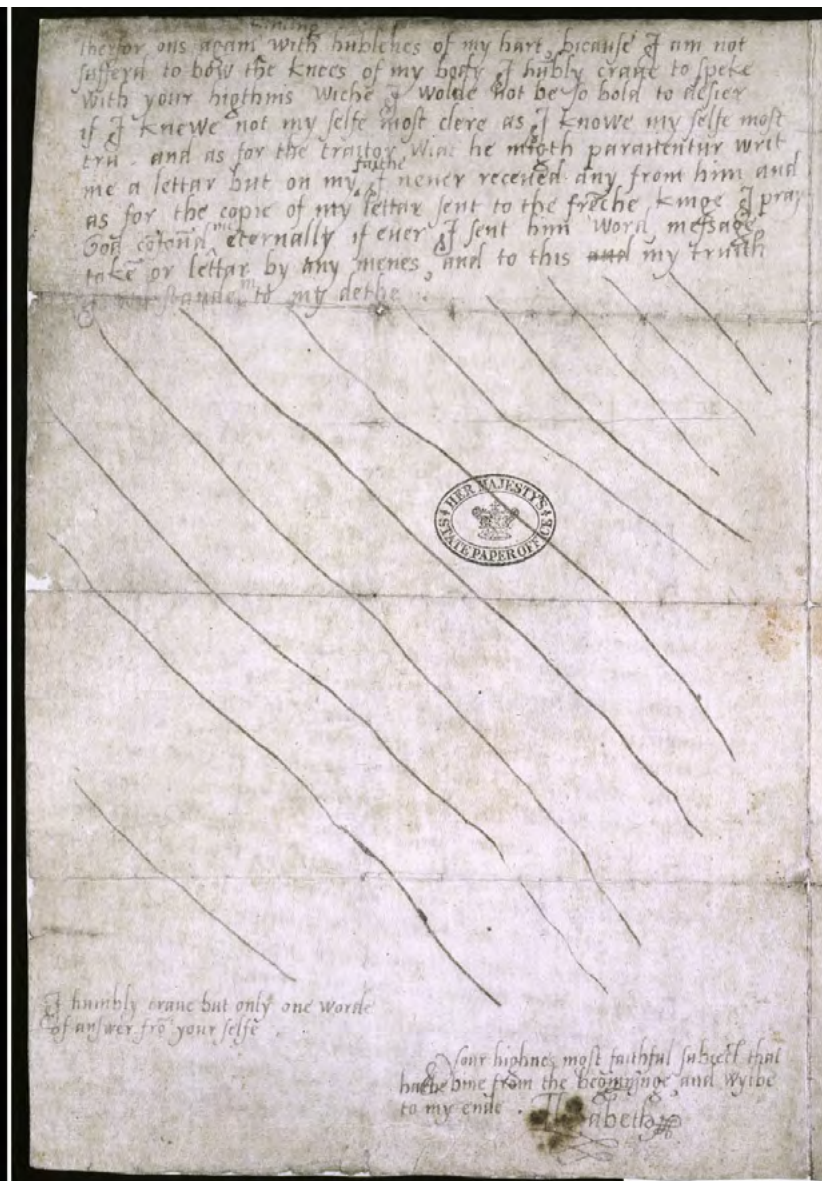 kniling
therfor ons again with hūblenes of my hart, bicause I am not
sufferd to bow the knees of my body I hūbly craue to speke
with your higthnis wiche I wolde not be so bold to desier
if I knewe not my selfe most clere as I knowe my selfe most
tru. and as for the traitor Wiat he migth parauentur writ
faithe
me a lettar but on my I neuer receued any from him and
as for the copie of my lettar sent to the frēche kinge I pray
me
God cōfoūd eternally if ever I sent him word, message,
takē or lettar by any menes, and to this and my truith
I wil stande in to my dethe
HER MAJESTY'S
STATE PAPER OFFICE
I humbly craue but only one worde
of answer frō your selfe.
Your highnes most faithful subiect that
hathe bine from the beginninge, and wylbe
to my ende. Elizabeth